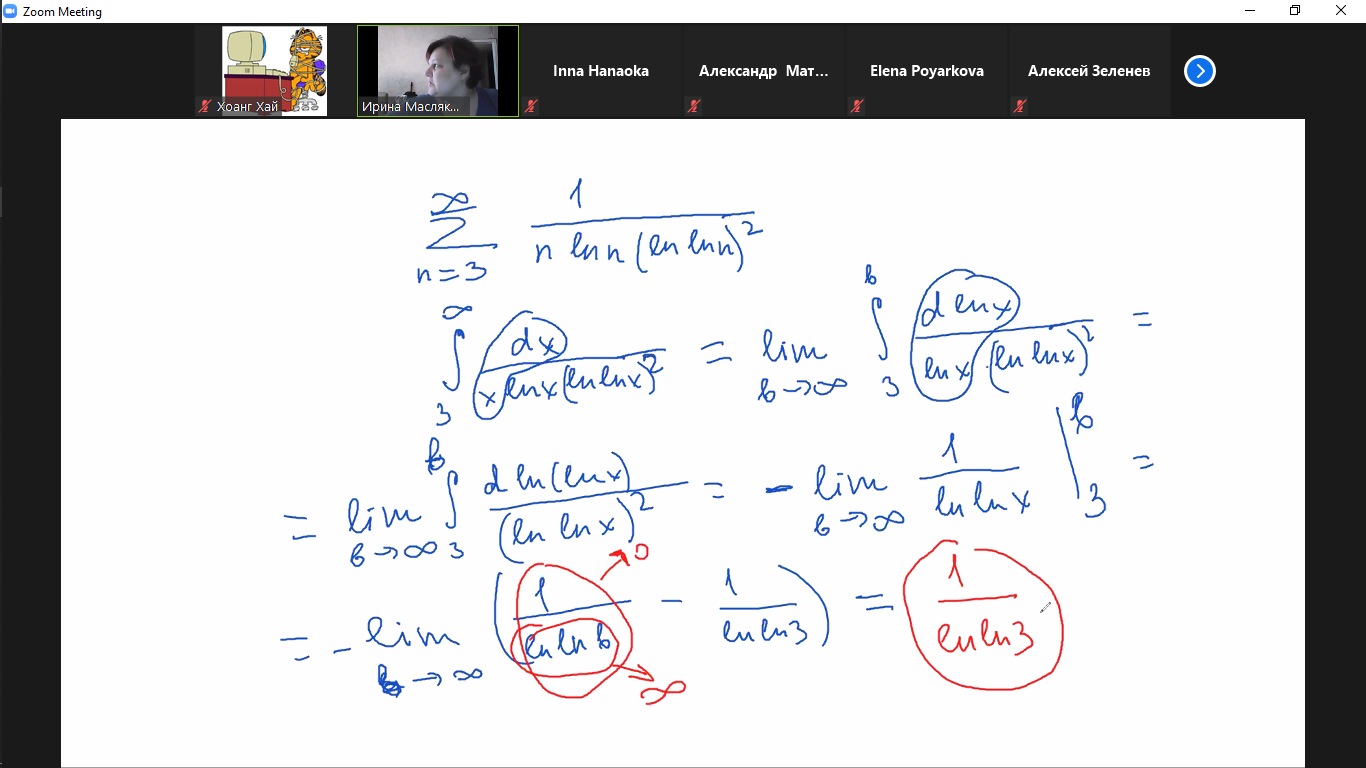 Zoom Meeting
Хоанг Хай
Ирина Масляк...
Inna Hanaoka
Александр Мат...
Elena Poyarkova
Алексей Зеленев
∞
Σ 1 / (n ln n (ln ln n)^2)
n=3
∫_3^∞ dx / (x ln x (ln ln x)^2) = lim_{b→∞} ∫_3^b d ln x / (ln x · (ln ln x)^2) =
= lim_{b→∞} ∫_3^b d ln(ln x) / (ln ln x)^2 = - lim_{b→∞} 1 / (ln ln x) |_3^b =
= - lim_{b→∞} (1 / (ln ln b) - 1 / (ln ln 3)) = 1 / (ln ln 3)
→ 0
→ ∞